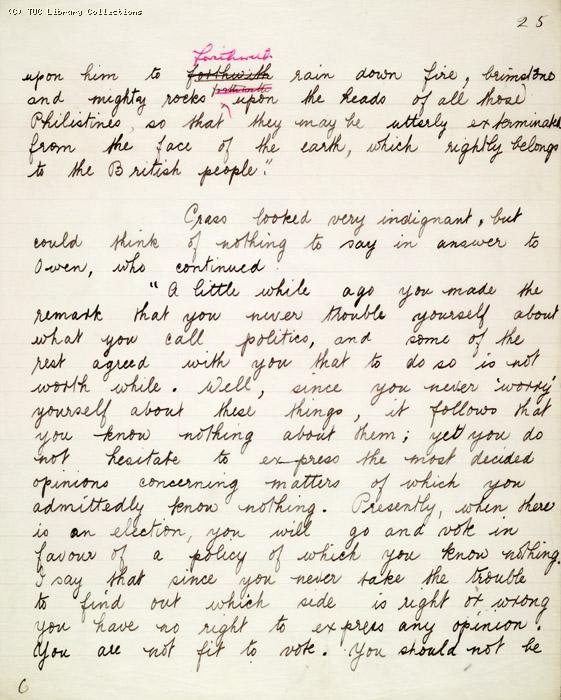 (C) TUC Library Collections
25
forthwith
upon him to forthwith rain down fire, brimstone
and mighty rocks upon the heads of all those
Philistines, so that they may be utterly exterminated
from the face of the earth, which rightly belongs
to the British people".
Crass looked very indignant, but
could think of nothing to say in answer to
Owen, who continued
"A little while ago you made the
remark that you never trouble yourself about
what you call politics, and some of the
rest agreed with you that to do so is not
worth while. Well, since you never 'worry'
yourself about these things, it follows that
you know nothing about them; yet you do
not hesitate to express the most decided
opinions concerning matters of which you
admittedly know nothing. Presently, when there
is an election, you will go and vote in
favour of a policy of which you know nothing.
I say that since you never take the trouble
to find out which side is right or wrong
you have no right to express any opinion.
You are not fit to vote. You should not be